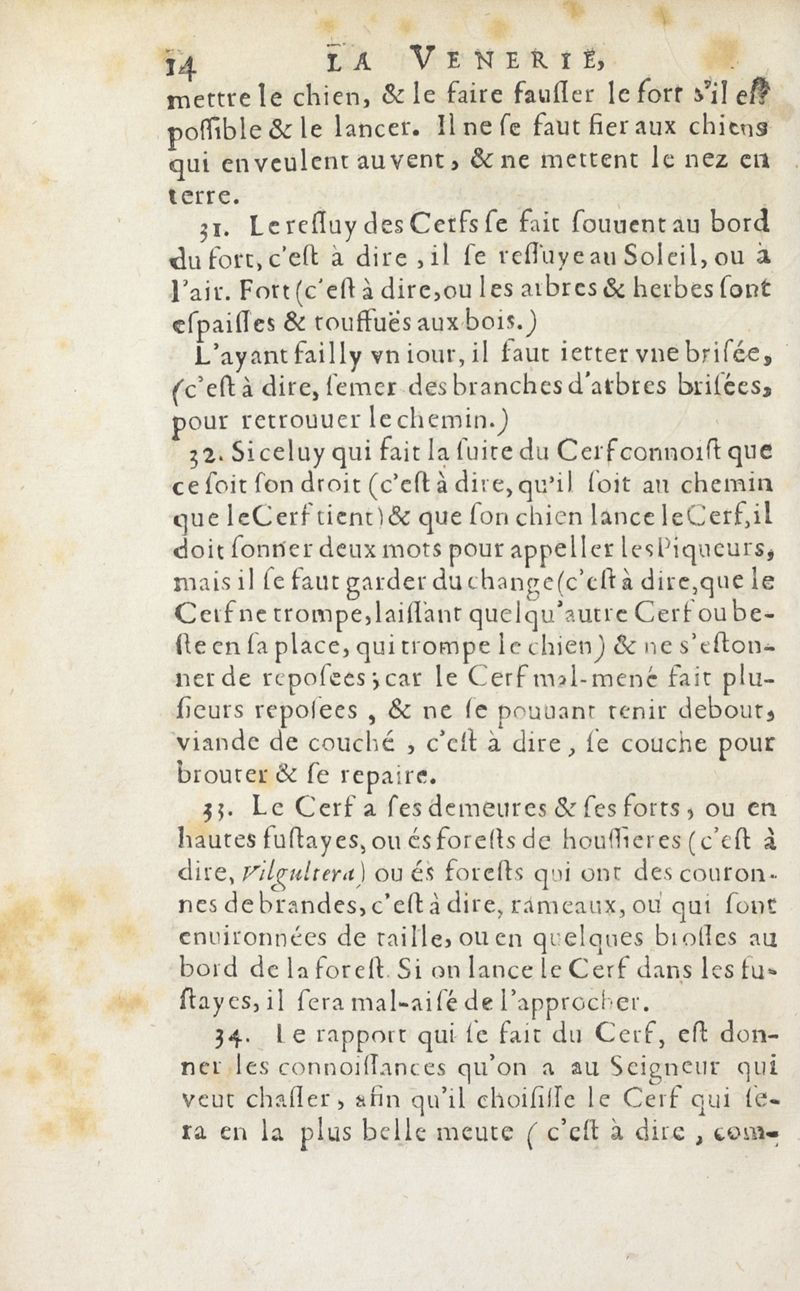 14 LA VENERIE,
mettre le chien, & le faire fauſſer le fort s'il eſt
poſſible & le lancer. Il ne ſe faut fier aux chiens
qui en veulent au vent, & ne mettent le nez en
terre.
31. Le reſſuy des Cerfs ſe fait ſouuent au bord
du fort, c'eſt à dire, il ſe reſſuye au Soleil, ou à
l'air. Fort (c'eſt à dire, ou les arbres & herbes ſont
eſpaiſſes & touffuës aux bois.)
L'ayant failly vn iour, il faut ietter vne briſée,
(c'eſt à dire, ſemer des branches d'arbres briſées,
pour retrouuer le chemin.)
32. Si celuy qui fait la ſuite du Cerf connoiſt que
ce ſoit ſon droit (c'eſt à dire, qu'il ſoit au chemin
que le Cerf tient) & que ſon chien lance le Cerf, il
doit ſonner deux mots pour appeller les Piqueurs,
mais il ſe faut garder du change (c'eſt à dire, que le
Cerf ne trompe, laiſſant quelqu'autre Cerf ou be-
ſte en ſa place, qui trompe le chien) & ne s'eſton-
ner de repoſees; car le Cerf mal-mené fait plu-
ſieurs repoſees, & ne ſe pouuant tenir debout,
viande de couché, c'eſt à dire, ſe couche pour
brouter & ſe repaire.
33. Le Cerf a ſes demeures & ſes forts, ou en
hautes fuſtayes, ou és foreſts de houſſieres (c'eſt à
dire, Vilgultera) ou és foreſts qui ont des couron-
nes de brandes, c'eſt à dire, rameaux, ou qui ſont
enuironnées de taille, ou en quelques broſſes au
bord de la foreſt. Si on lance le Cerf dans les fu-
ſtayes, il ſera mal-aiſé de l'approcher.
34. Le rapport qui ſe fait du Cerf, eſt don-
ner les connoiſſances qu'on a au Seigneur qui
veut chaſſer, afin qu'il choiſiſſe le Cerf qui ſe-
ra en la plus belle meute (c'eſt à dire, com-